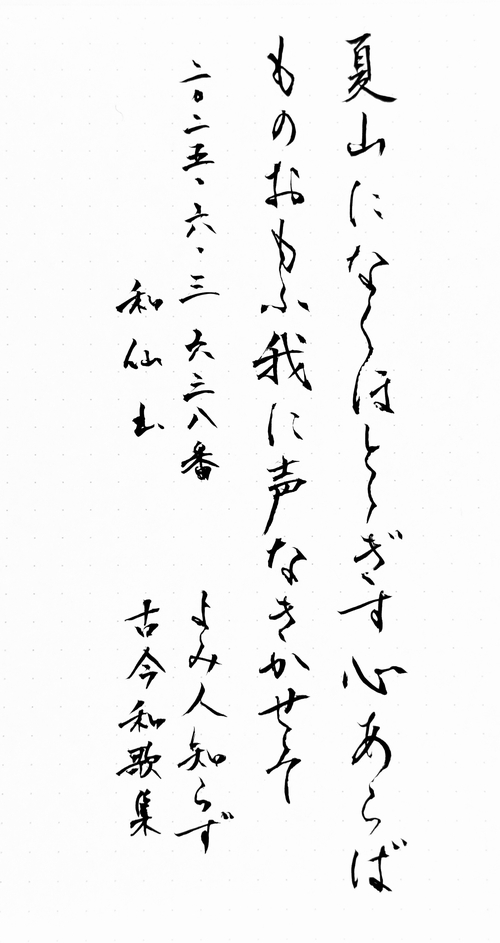 夏山になくほとゝぎす心あらば
ものおもふ我に声なきかせそ
二〇二五、六、三 六三八番
よみ人知らず
和仙出
古今和歌集